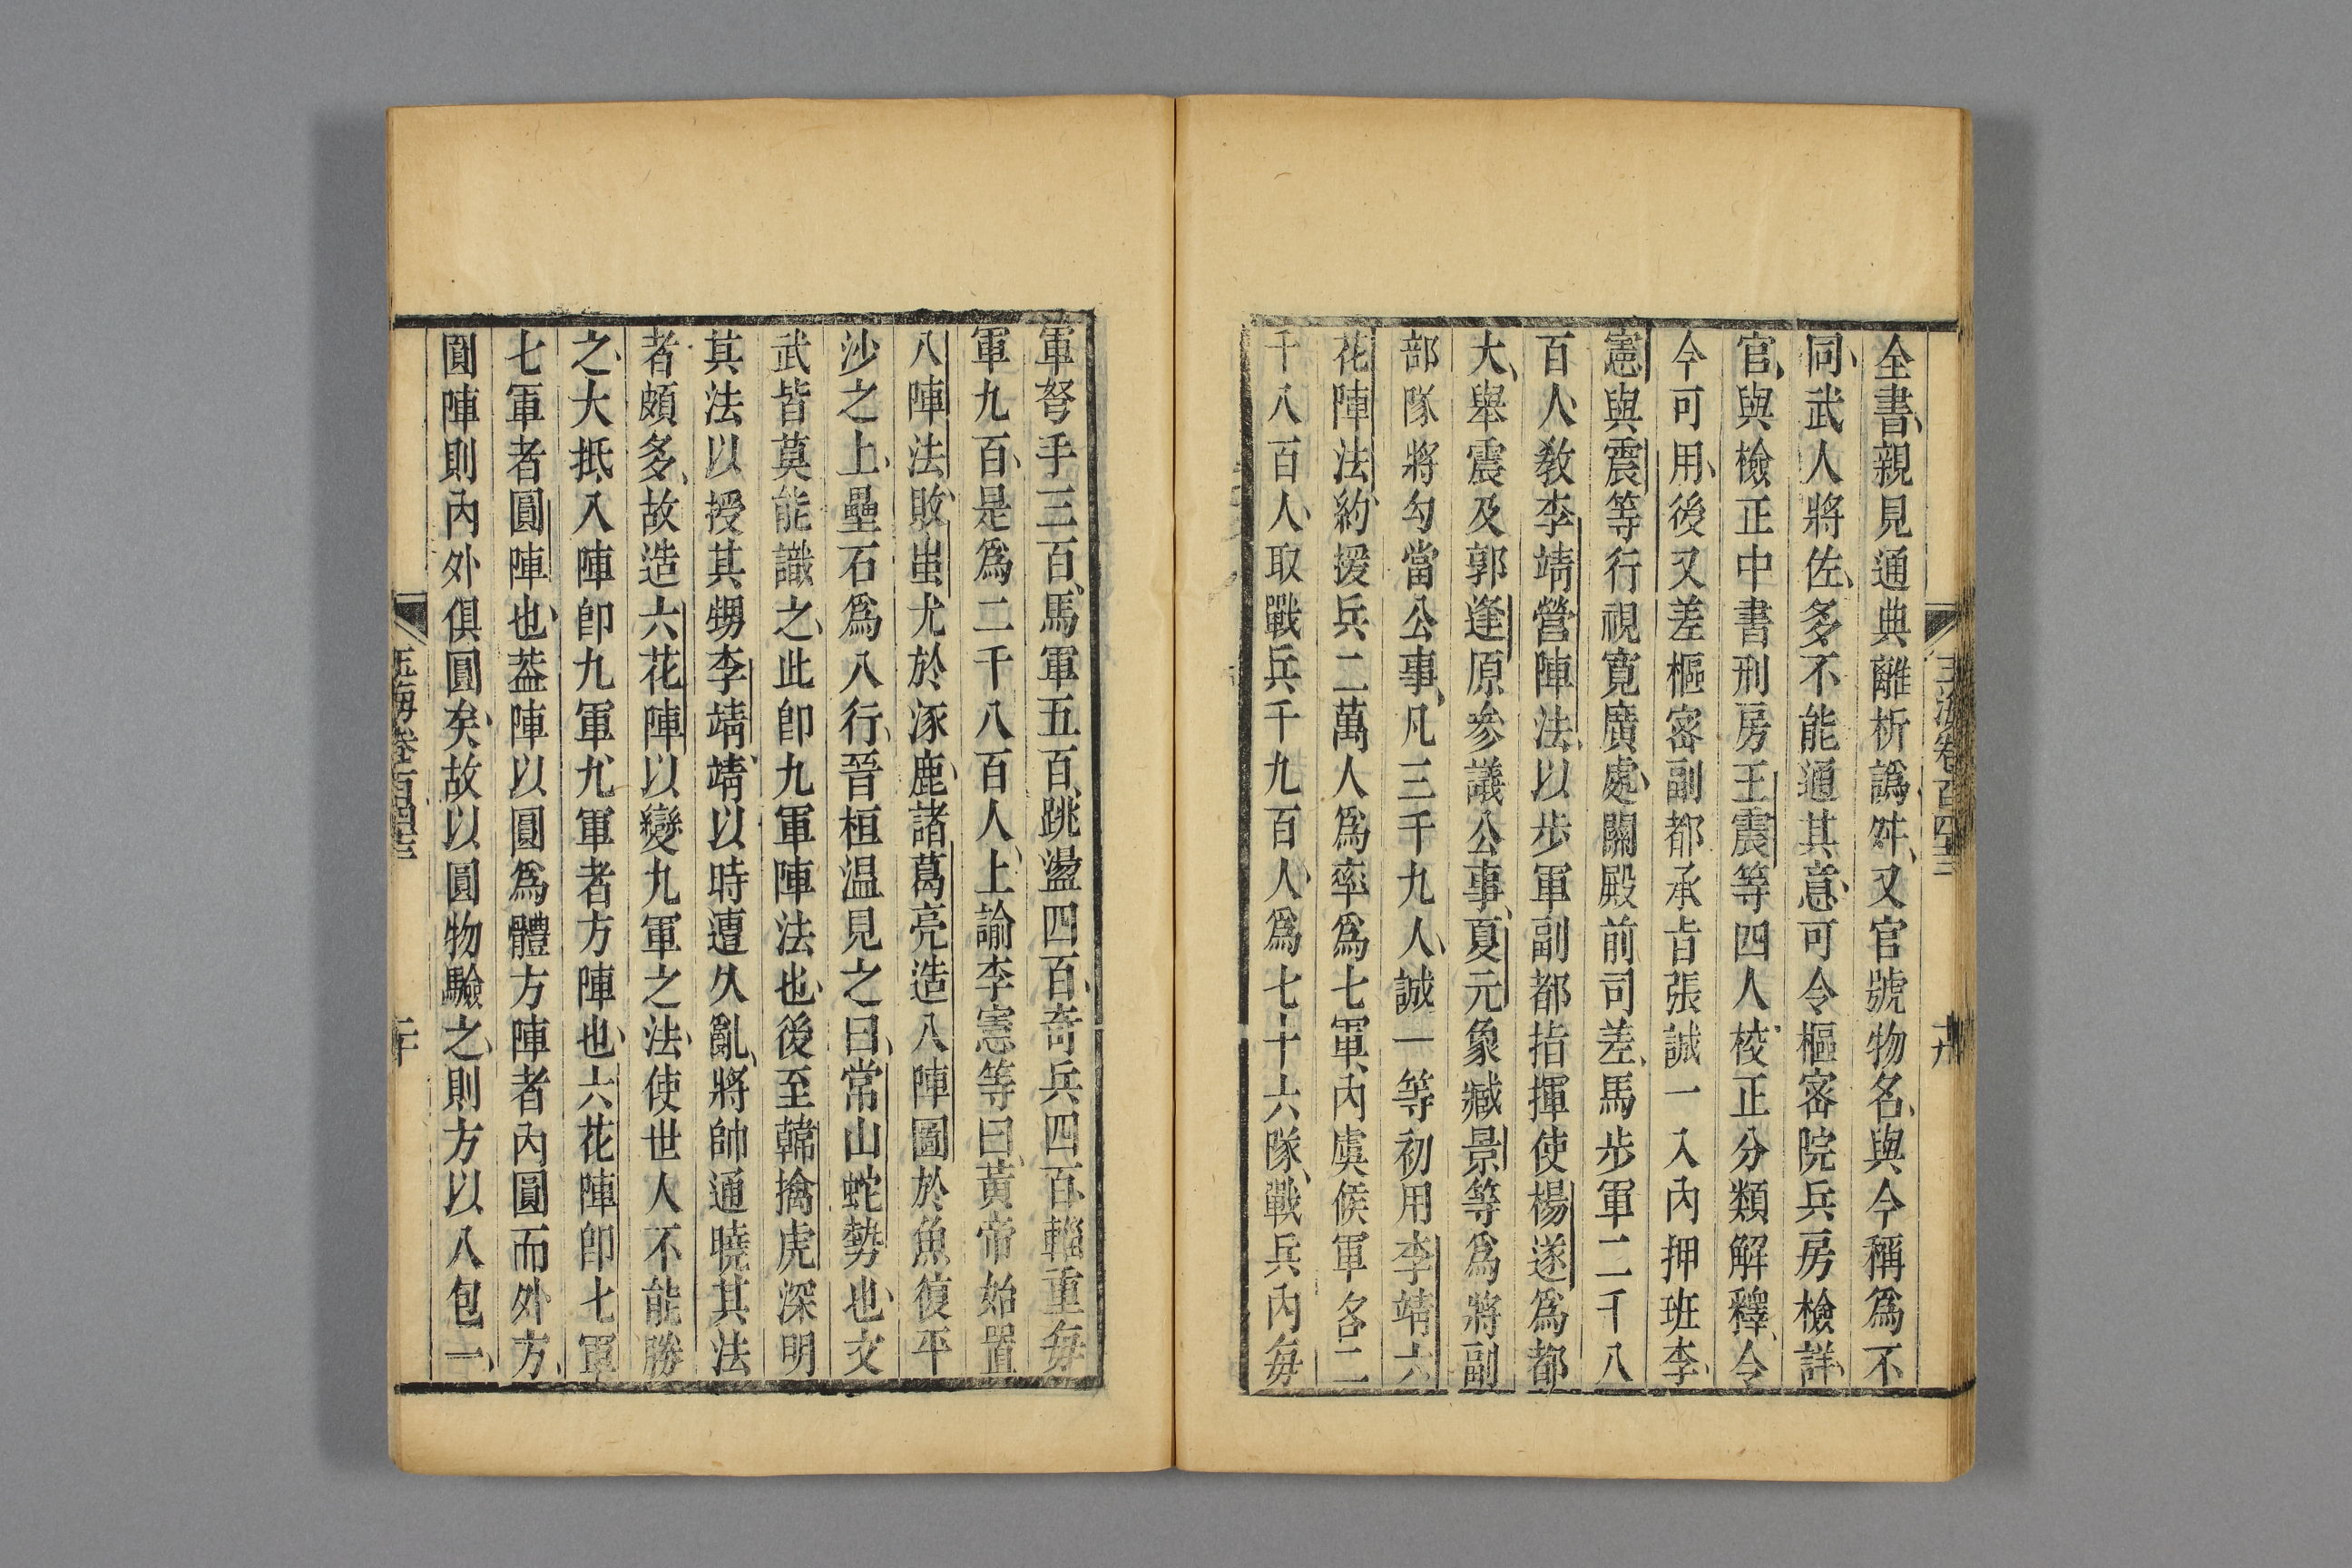 全書親見通典離析譌舛又官號物名與今稱爲不
同武人將佐多不能通其意可令樞密院兵房檢詳
官與檢正中書刑房王震等四人校正分類解釋令
今可用後又差樞密副都承旨張誠一入內押班李
憲與震等行視寛廣處關殿前司差馬步軍二千八
百人敎李靖營陣法以步軍副都指揮使楊遂爲都
大舉震及郭逢原參議公事夏元象臧景等爲將副
部隊將勾當公事凡三千九人誠一等初用李靖六
花陣法約援兵二萬人爲率爲七軍內虞候軍各二
千八百人取戰兵千九百人爲七十六隊戰兵內每
玉海卷一百四十三
十九
軍弩手三百馬軍五百跳盪四百奇兵四百輜重每
軍九百是爲二千八百人上諭李憲等曰黃帝始置
八陣法敗蚩尤於涿鹿諸葛亮造八陣圖於魚復平
沙之上壘石爲八行晉桓温見之曰常山蛇勢也文
武皆莫能識之此卽九軍陣法也後至韓擒虎深明
其法以授其甥李靖靖以時遭久亂將帥通曉其法
者頗多故造六花陣以變九軍之法使世人不能勝
之大抵入陣卽九軍九軍者方陣也六花陣卽七軍
七軍者圓陣也葢陣以圓爲體方陣者內圓而外方
圓陣則內外俱圓矣故以圓物驗之則方以八包一
玉海卷一百四十三
二十